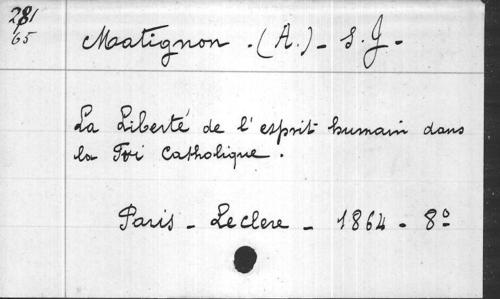 281
65
Matignon. (A.) - S. J -
La Liberté de l'esprit humain dans
la Foi Catholique.
Paris - Leclere - 1864 - 8º